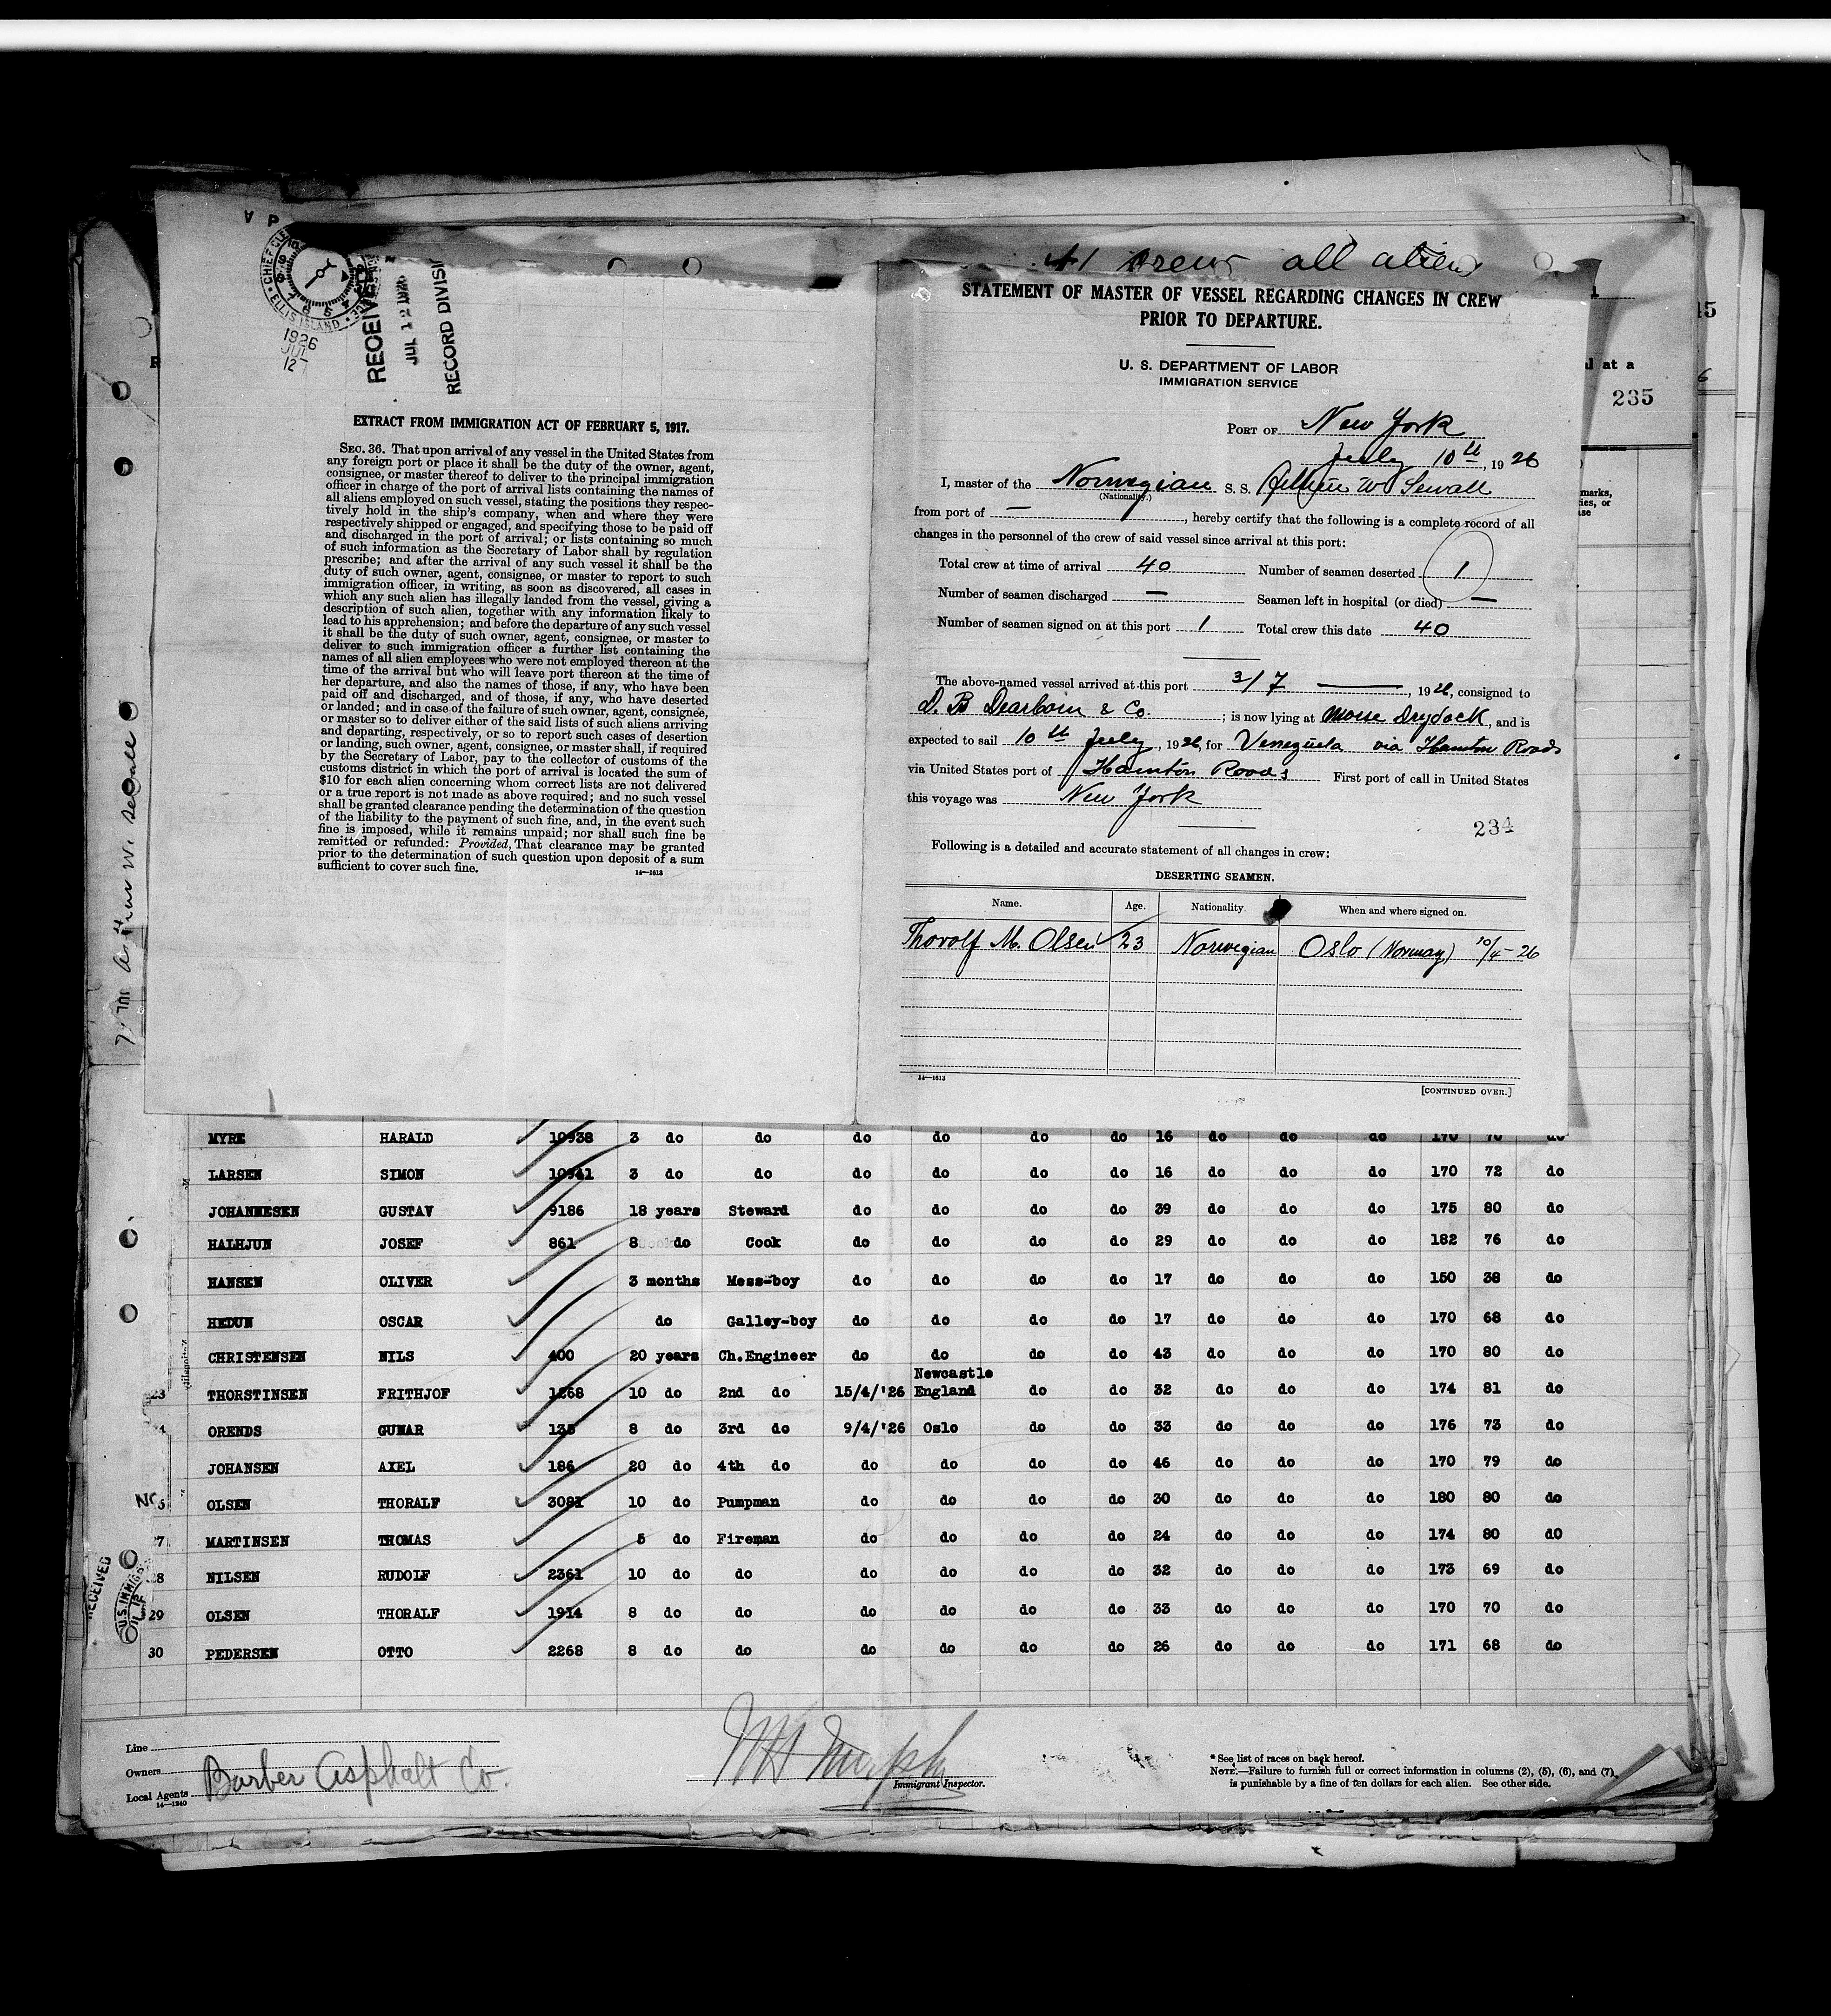 A P
CHIEF CLE
ELLIS ISLAND
1926
JUL
12
RECEIVED
JUL 12 1926
RECORD DIVISI
EXTRACT FROM IMMIGRATION ACT OF FEBRUARY 5, 1917.
SEC. 36. That upon arrival of any vessel in the United States from
any foreign port or place it shall be the duty of the owner, agent,
consignee, or master thereof to deliver to the principal immigration
officer in charge of the port of arrival lists containing the names of
all aliens employed on such vessel, stating the positions they respec-
tively hold in the ship's company, when and where they were
respectively shipped or engaged, and specifying those to be paid off
and discharged in the port of arrival; or lists containing so much
of such information as the Secretary of Labor shall by regulation
prescribe; and after the arrival of any such vessel it shall be the
duty of such owner, agent, consignee, or master to report to such
immigration officer, in writing, as soon as discovered, all cases in
which any such alien has illegally landed from the vessel, giving a
description of such alien, together with any information likely to
lead to his apprehension; and before the departure of any such vessel
it shall be the duty of such owner, agent, consignee, or master to
deliver to such immigration officer a further list containing the
names of all alien employees who were not employed thereon at the
time of the arrival but who will leave port thereon at the time of
her departure, and also the names of those, if any, who have been
paid off and discharged, and of those, if any, who have deserted
or landed; and in case of the failure of such owner, agent, consignee,
or master so to deliver either of the said lists of such aliens arriving
and departing, respectively, or so to report such cases of desertion
or landing, such owner, agent, consignee, or master shall, if required
by the Secretary of Labor, pay to the collector of customs of the
customs district in which the port of arrival is located the sum of
$10 for each alien concerning whom correct lists are not delivered
or a true report is not made as above required; and no such vessel
shall be granted clearance pending the determination of the question
of the liability to the payment of such fine, and, in the event such
fine is imposed, while it remains unpaid; nor shall such fine be
remitted or refunded: Provided, That clearance may be granted
prior to the determination of such question upon deposit of a sum
sufficient to cover such fine.
14—1613
41 crew all aliens
STATEMENT OF MASTER OF VESSEL REGARDING CHANGES IN CREW
PRIOR TO DEPARTURE.
U. S. DEPARTMENT OF LABOR
IMMIGRATION SERVICE
PORT OF New York
July 10th, 1926
I, master of the Norwegian S. S. Arthur W Sewall
(Nationality.)
from port of —, hereby certify that the following is a complete record of all
changes in the personnel of the crew of said vessel since arrival at this port:
Total crew at time of arrival 40 Number of seamen deserted 1
Number of seamen discharged — Seamen left in hospital (or died) —
Number of seamen signed on at this port 1 Total crew this date 40
The above-named vessel arrived at this port 3/7 —, 1926, consigned to
D. B Dearborn & Co. ; is now lying at Morse Drydock, and is
expected to sail 10th July, 1926, for Venezuela via Hamton Roads
via United States port of Hamton Roads First port of call in United States
this voyage was New York
234
Following is a detailed and accurate statement of all changes in crew:
DESERTING SEAMEN.
Name. Age. Nationality. When and where signed on.
Thorolf M. Olsen 23 Norwegian Oslo (Norway) 10/4-26
14—1613
[CONTINUED OVER.]
15
al at a
235
marks,
ies, or
ase
MYRE HARALD 10938 3 do do do do do do 16 do do do 170 70 do
LARSEN SIMON 10941 3 do do do do do do 16 do do do 170 72 do
JOHANNESEN GUSTAV 9186 18 years Steward do do do do 39 do do do 175 80 do
HALHJUN JOSEF 861 8 do Cook do do do do 29 do do do 182 76 do
HANSEN OLIVER 3 months Mess-boy do do do do 17 do do do 150 38 do
HEDUN OSCAR do Galley-boy do do do do 17 do do do 170 68 do
CHRISTENSEN NILS 400 20 years Ch.Engineer do do do do 43 do do do 170 80 do
23 THORSTINSEN FRITHJOF 1268 10 do 2nd do 15/4/'26 Newcastle England do do 32 do do do 174 81 do
4 ORENDS GUNAR 135 8 do 3rd do 9/4/'26 Oslo do do 33 do do do 176 73 do
JOHANSEN AXEL 186 20 do 4th do do do do do 46 do do do 170 79 do
OLSEN THORALF 3081 10 do Pumpman do do do do 30 do do do 180 80 do
27 MARTINSEN THOMAS 5 do Fireman do do do do 24 do do do 174 80 dO
28 NILSEN RUDOLF 2361 10 do do do do do do 32 do do do 173 69 do
29 OLSEN THORALF 1914 8 do do do do do do 33 do do do 170 70 do
30 PEDERSEN OTTO 2268 8 do do do do do do 26 do do do 171 68 do
RECEIVED
U.S. IMMIG
Line
Owners
Local Agents Barber Asphalt Co.
14—1240
Immigrant Inspector.
* See list of races on back hereof.
NOTE.—Failure to furnish full or correct information in columns (2), (5), (6), and (7),
is punishable by a fine of ten dollars for each alien. See other side.